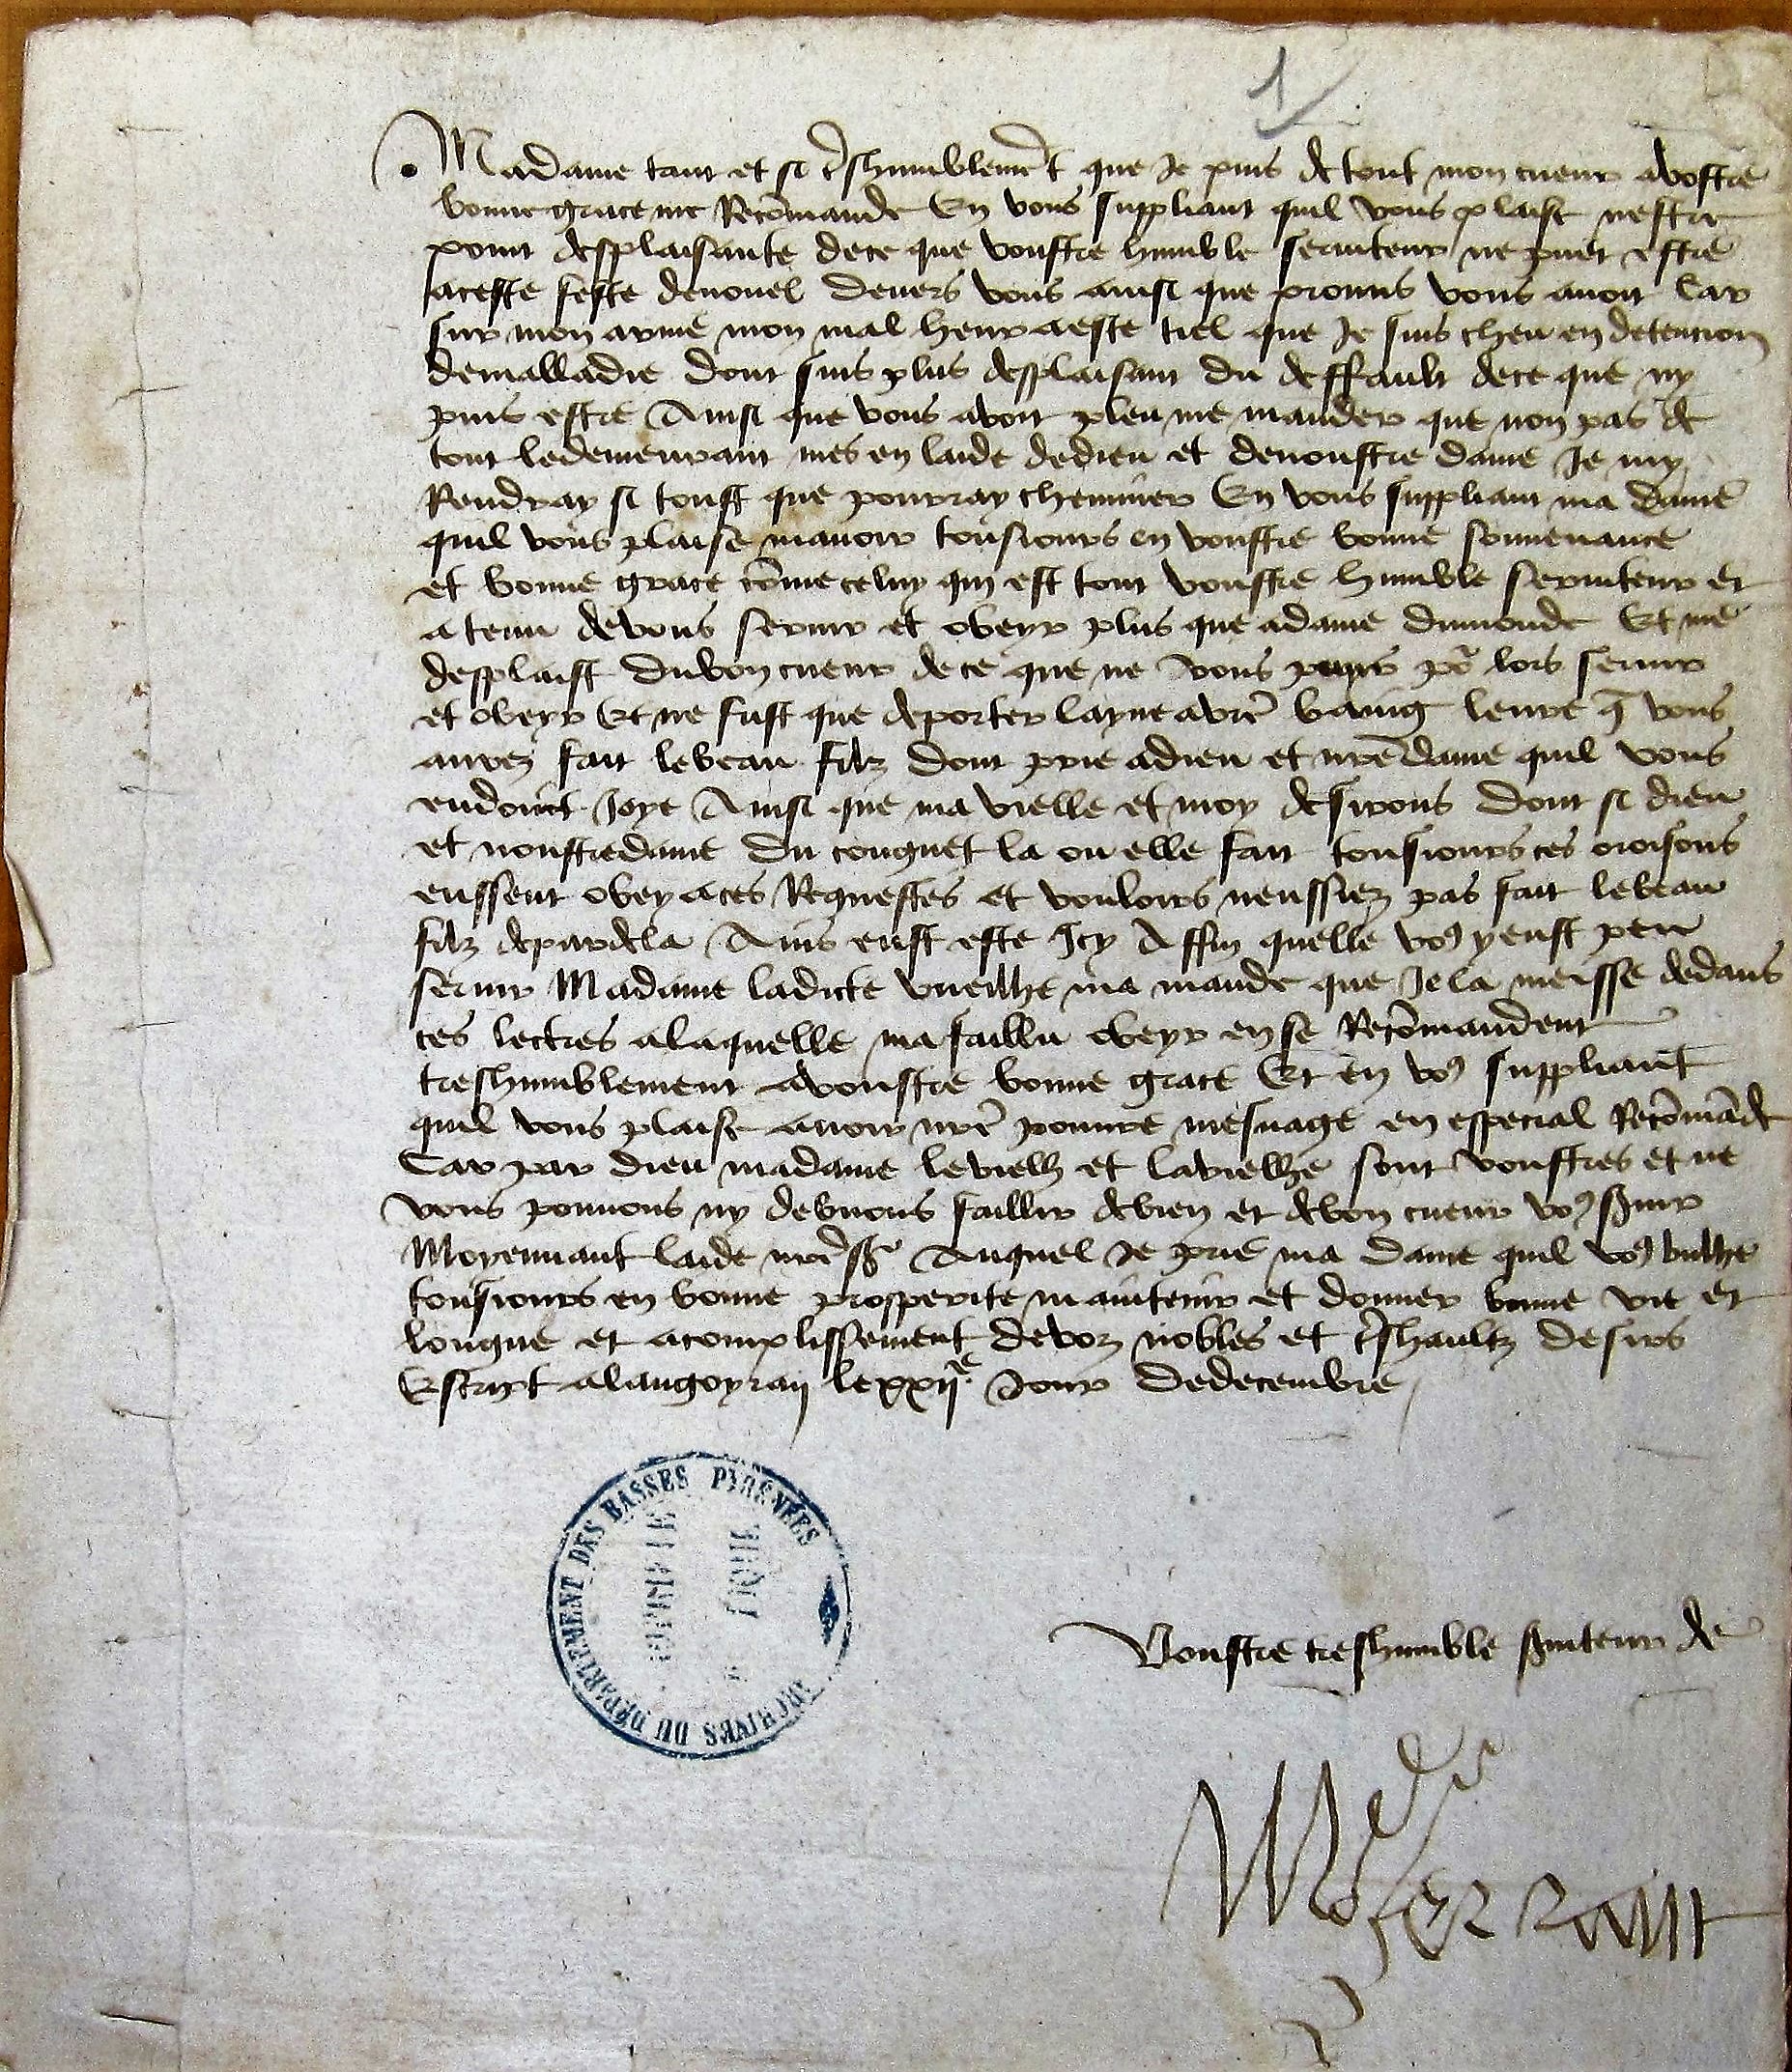 1
Madame tant et si trshumblemẽt que Je puis de tout mon cueur avostre
bonne grace me Recõmande En vous suppliant quil vous plaise nestre
point desplaisante dece que voustre humble seruiteur ne puet estre
aceste feste denouel deuers vous ainsi que promis vous auoit Car
sur mon arme mon mal heur aeste tiel que Je suis cheu en detencion
demalladie dont suis plus desplaisant du deffault dece que ny
puis estre Ainsi que vous avoit pleu me mander que non pas de
tout ledemeurant mes en laide dedieu et denoustre dame Je my
Rendray si toust que pourray cheminer En vous suppliant ma dame
quil vous plaise mauoir tousiours en voustre bonne souuenance
et bonne grace cõme celuy qui est tout voustre humble seruiteur et
atenu devous seruir et obeyr plus que adame dumonde Et me
desplaist dubon cueur de ce que ne vous puys põ lors seruir
et obeyr Et ne fust que deporter layne avrẽ leure q̃ vous
aurez fait lebeau filz dont prie adieu et nrẽ dame quil vous
endoint Joye Ainsi que ma vielle et moy desirons dont si dieu
et noustredame du conguet la ou elle fait tousiours ces oroisons
eussent obey aces Requestes et vouloirs neussiez pas fait lebeau
filz depardela Ains eust este Jcy Affin quelle voꝰ yeust peu
seruir Madame ladicte vueilhe ma mande que Je la meisse dedans
ces lectres alaquelle ma faillu obeyr en se Recõmandent
treshumblement avoustre bonne grace Et en voꝰ suppliant
quil vous plaise auoir nrẽ pouure mesnage en especial Recõmãde
Car par dieu madame levielh et lavielhe sont voustres et ne
vous pouuons ny debuons faillir debien et debon cueur voꝰ s̃uir
Moyennant laide nrẽ sr̃ Auquel Je prie ma dame quil voꝰ vuilhe
tousiours en bonne prosperite maintenir et donner bonne vie et
longue et acomplissement devoz nobles et trshaultz desirs
Escript alangoyran lexxijᵉ Jour dedecembre
ARCHIVES DU DÉPARTEMENT DES BASSES PYRÉNÉES
Voustre treshumble s̃uiteur de
ferrant